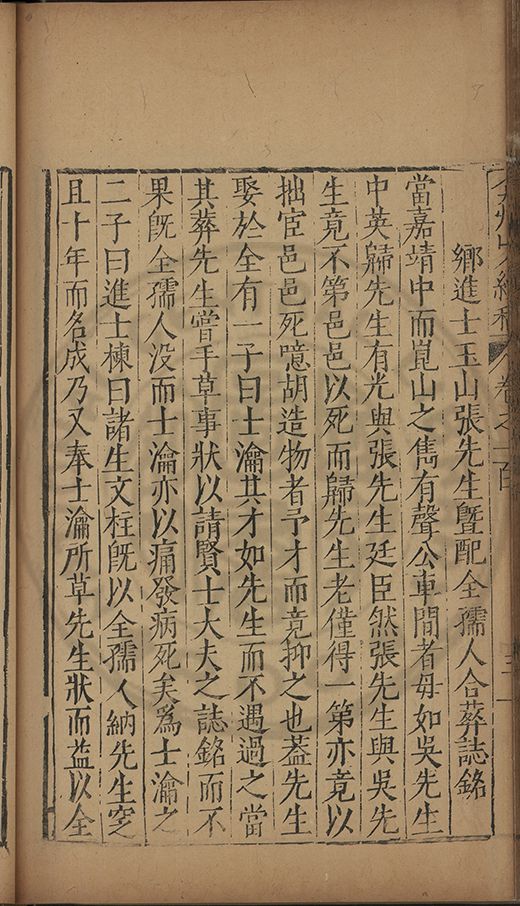 鄉進士玉山張先生曁配全孺人合葬誌銘
當嘉靖中而崑山之雋有聲公車間者毋如吳先生
中英歸先生有光與張先生廷臣然張先生與吳先
生竟不第邑邑以死而歸先生老僅得一第亦竟以
拙宦邑邑死噫胡造物者予才而竟抑之也葢先生
娶於全有一子曰士瀹其才如先生而不遇過之當
其葬先生嘗手草事狀以請賢士大夫之誌銘而不
果旣全孺人没而士瀹亦以痛發病死矣爲士瀹之
二子曰進士棟曰諸生文柱旣以全孺人納先生窆
且十年而名成乃又奉士瀹所草先生狀而益以全